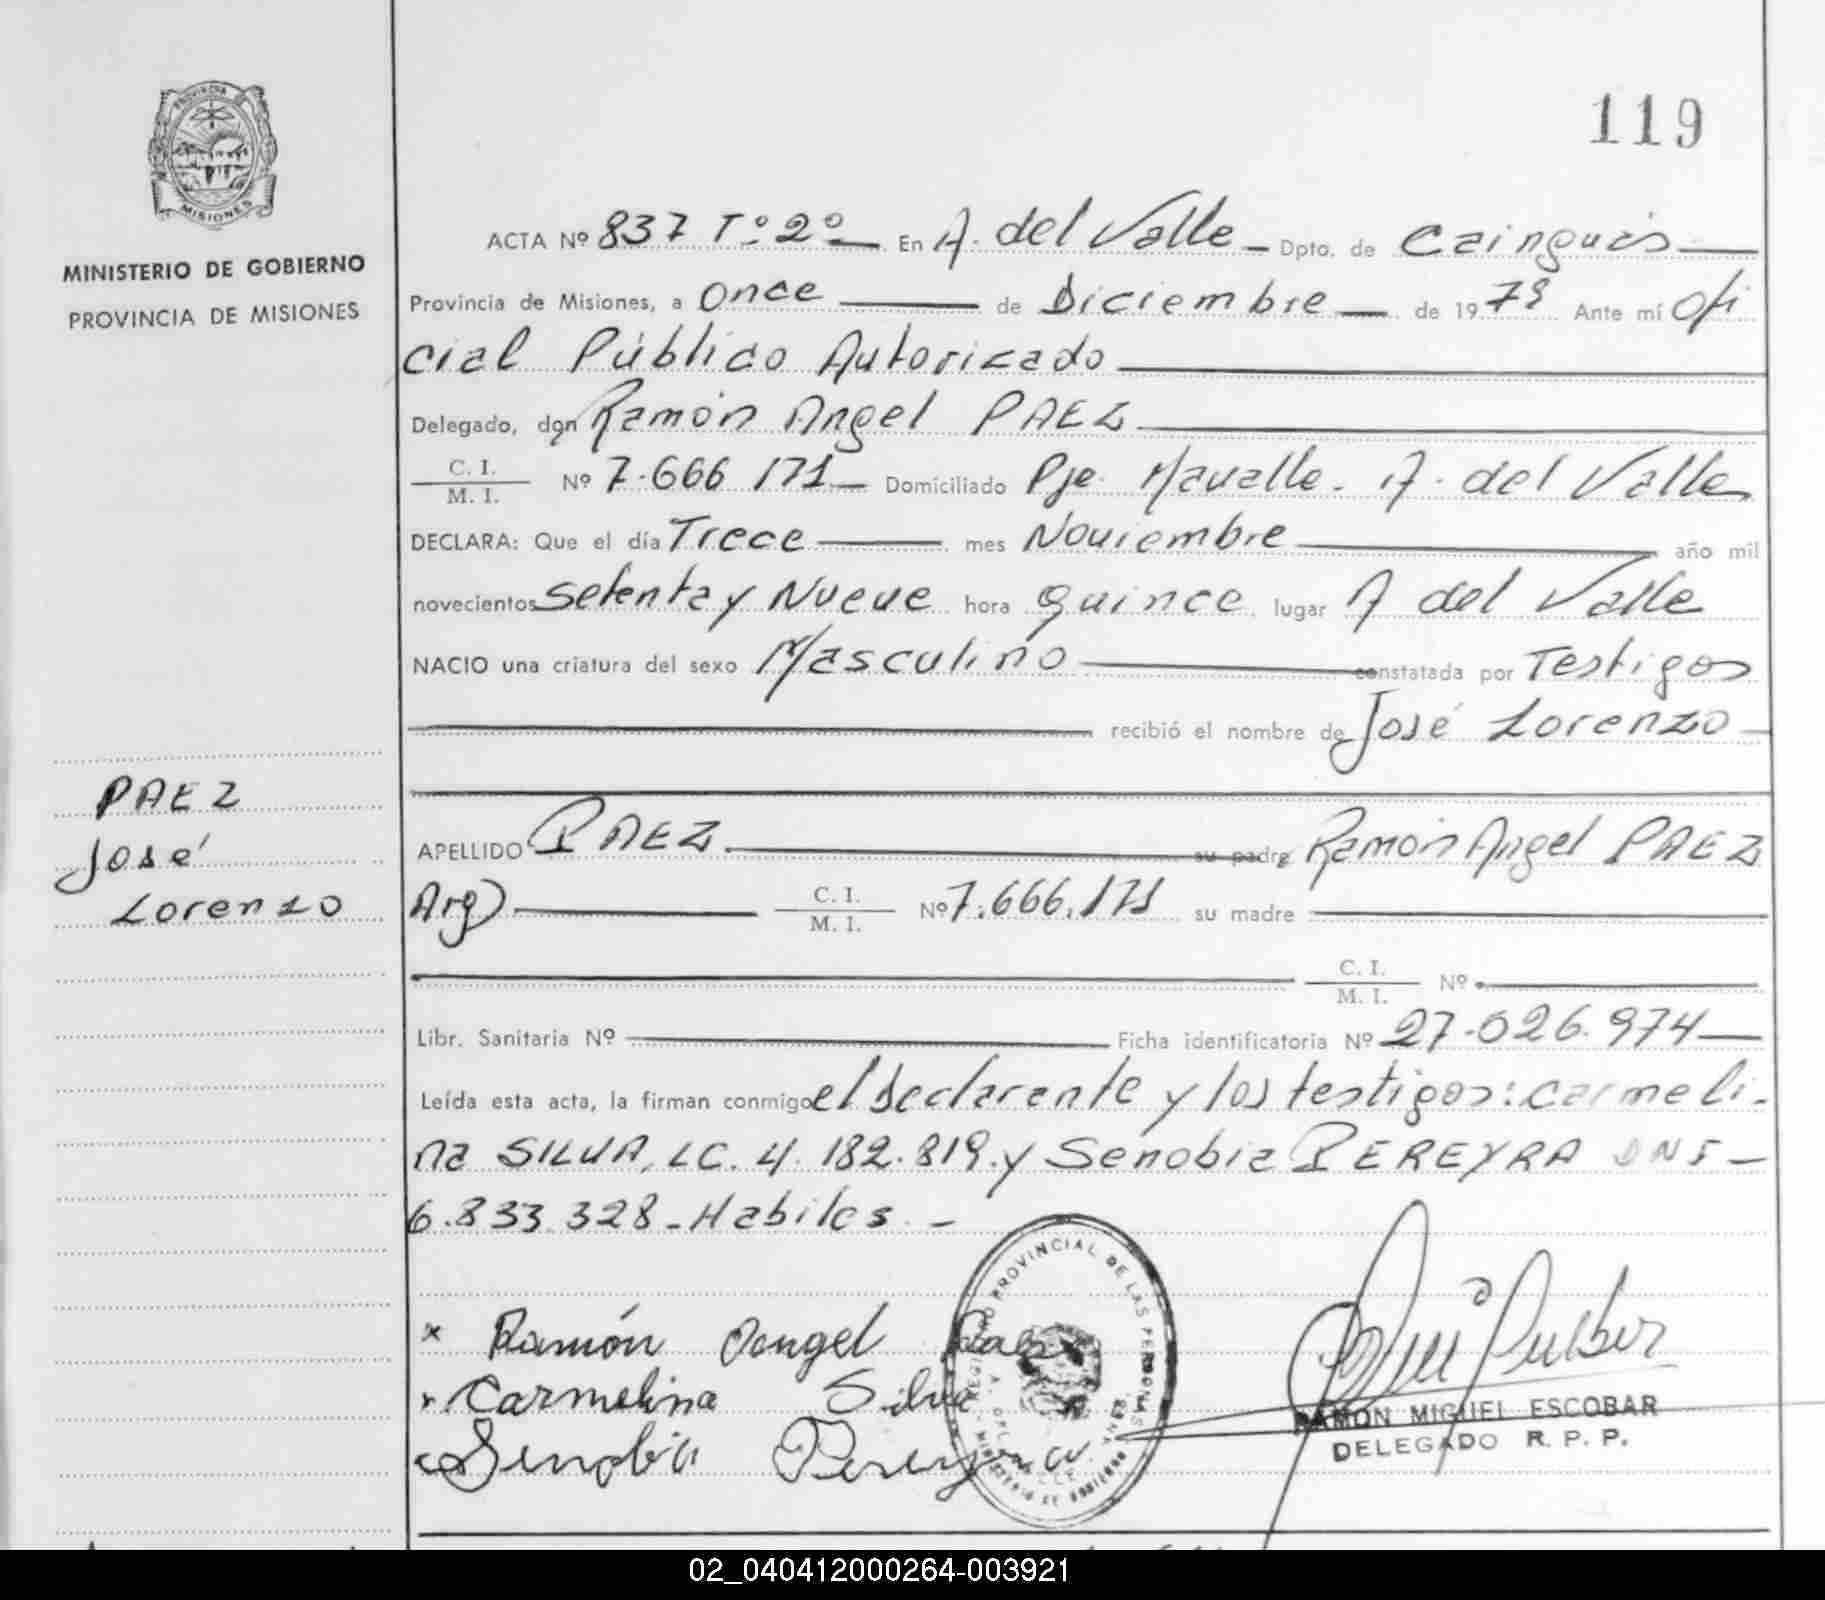 119
PROVINCIA
MISIONES
MINISTERIO DE GOBIERNO
PROVINCIA DE MISIONES
ACTA Nº 837 Tº 2º En A. del Valle Dpto. de Cainguás
Provincia de Misiones, a Once de Diciembre de 1979 Ante mí Ofi
cial Público Autorizado
Delegado, don Ramón Angel PAEZ
C. I.
M. I. Nº 7.666 171 Domiciliado Pje. Mavalle. A. del Valle
DECLARA: Que el día Trece mes Noviembre año mil
novecientos Setenta y Nueve hora quince lugar A del Valle
NACIO una criatura del sexo Masculino constatada por Testigos
recibió el nombre de José Lorenzo
PAEZ
José
Lorenzo
APELLIDO PAEZ su padre Ramón Angel PAEZ
Arg) C. I.
M. I. Nº 7.666.171 su madre
C. I.
M. I. Nº
Libr. Sanitaria Nº Ficha identificatoria Nº 27.026.974
Leída esta acta, la firman conmigo el declarante y los testigos: Carmeli-
na SILVA, LC. 4.182.819.y Senobia PEREYRA DNI
6.833.328-Habiles.-
x Ramón Angel Paez
x Carmelina Silva
x Senobia Pereyra
PROVINCIAL DE LAS PERSONAS
RAMON MIGUEL ESCOBAR
DELEGADO R. P. P.
02_040412000264-003921